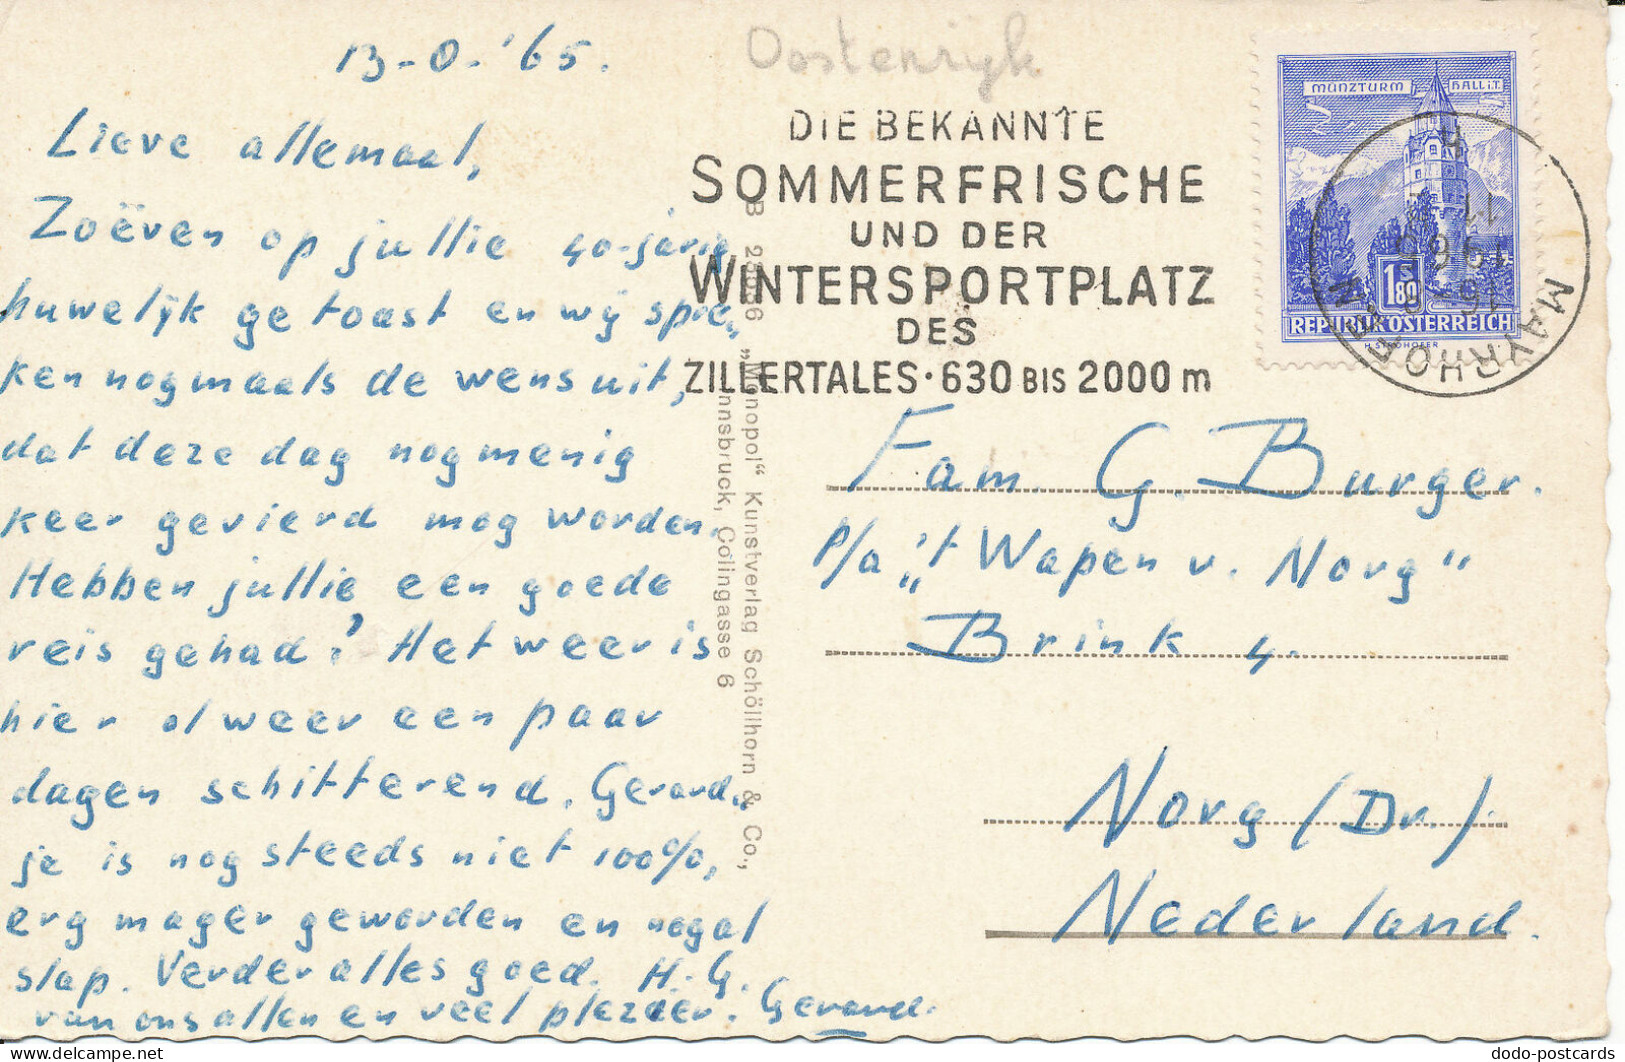 13-0-'65.
Lieve allemaal,
Zoëven op jullie 40-jarig
huwelijk getoast en wij spre,
ken nogmaals de wens uit,
dat deze dag nog menig
keer gevierd mog worden.
Hebben jullie een goede
reis gehad? Het weer is
hier al weer een paar
dagen schitterend. Gerard„
je is nog steeds niet 100%,
erg mager geworden en nogal
slap. Verder alles goed. H. G.
van ons allen en veel plezier. Gerard.
Oostenrijk
DIE BEKANNTE
SOMMERFRISCHE
UND DER
WINTERSPORTPLATZ
DES
ZILLERTALES·630 BIS 2000 m
MÜNZTURM HALL i.T.
1S80
REPUBLIK ÖSTERREICH
MAYRHOFEN
„Monopol“ Kunstverlag Schöllhorn & Co.,
Innsbruck, Colingasse 6
Fam. G. Burger.
p/a „'t Wapen v. Norg"
Brink 4.
Norg (Dr.)
Nederland.
dodo-postcards